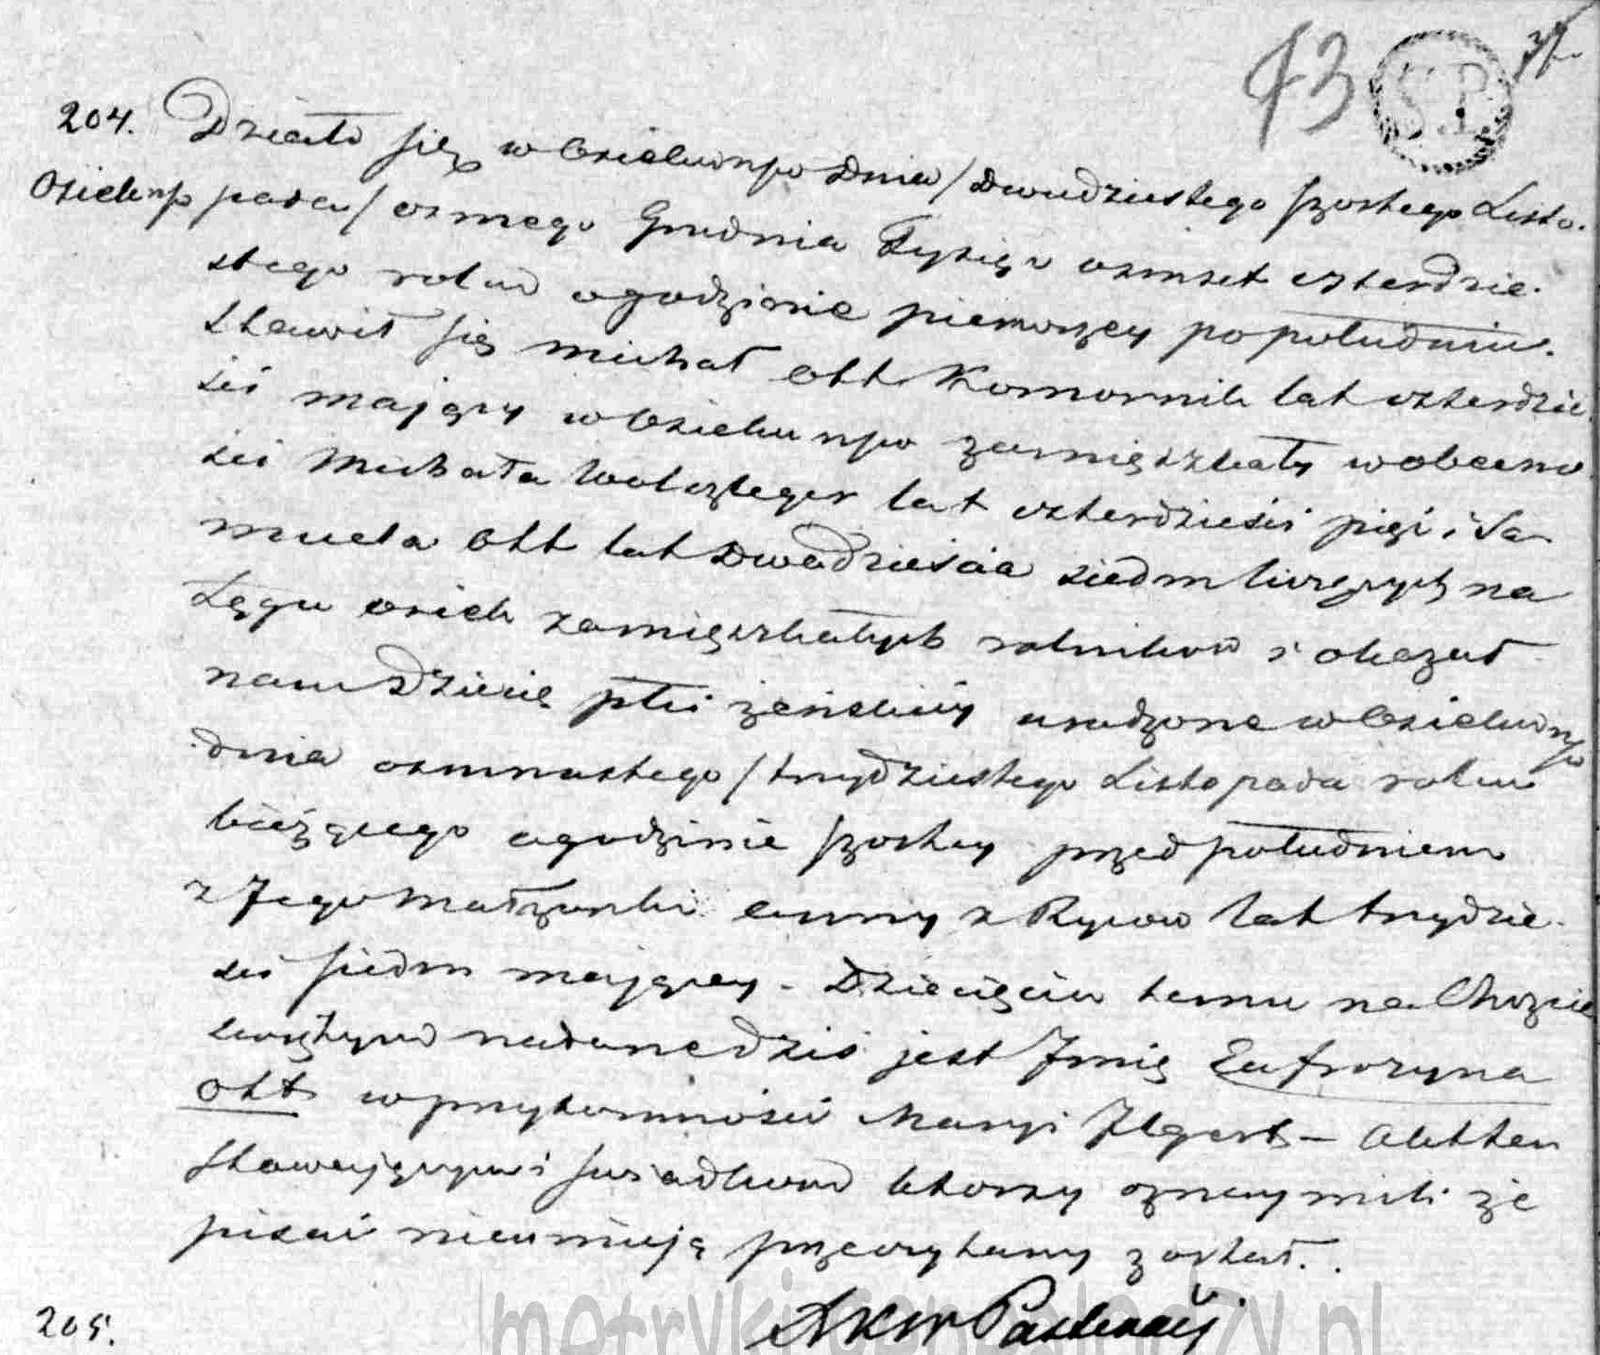 73
S.P.
204. Działo się w Osieku npo Dnia / Dwudziestego szostego Listo.
Osiek np pada / osmego Grudnia Tysiąc osmset czterdzie.
stego roku o godzinie pierwszey popołudniu.
Stawił się Michał Ott Komornik lat czterdzie
ści mający w Osieku npo zamięszkały w obecno
ści Michała lat czterdzieści pięć i Sa
muela Ott lat Dwadzieścia siedm liczących na
Łęgu osiek zamięszkałych rolników i okazał
nam Dziecię płci żeńskiey urodzone w Osieku npo
dnia osmnastego / trzydziestego Listopada roku
bieżącego o godzinie szostey przed południem
z Jego Małżonki Anny z Rycow lat trzydzie.
ści siedm maiącey - Dziecięciu temu na Chrzcie
swiętym nadane dziś jest Imię Eufrozyna
Ott w przytomności Maryi Ilgert -
Stawającym i swiadkom ktorzy oznaymili że
pisać nieumieją przeczytany został..
205.
metryki.genealodzy.pl